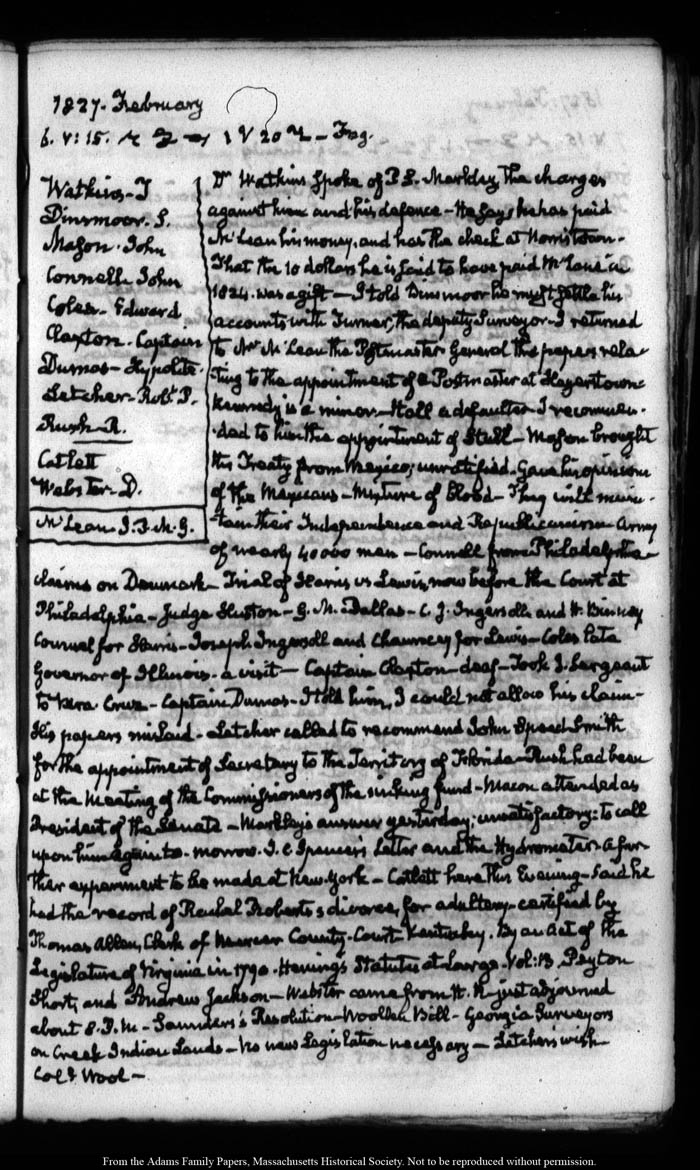 1827. February
6. V:15. 1 V 20 — Fog.
Watkins - T
Dinsmoor. S.
Mason. John
Connell. John
Coles. Edward
Claxton. Captain
Dumas - Hypolite.
Letcher - Robt. P.
Rush - R.
Catlett
Webster. D.
McLean J. P. M. G.
Dr Watkins spoke of P. S. Markley, the charges
against him and his defence - He says he has paid
McLean his money, and has the check at Norristown -
That the 10 dollars he is said to have paid in
1824. was a gift — I told Dinsmoor he must settle his
accounts with Turner, the deputy Surveyor - I returned
to Mr McLean the Postmaster General the papers rela-
ting to the appointment of a Postmaster at Hagerstown
Kennedy is a minor - Hall a defaulter - I recommen-
ded to him the appointment of Stull - Mason brought
the Treaty from Mexico; unratified. Gave his opinion
of the Mexicans - Mixture of blood - They will main-
tain their Independence and Republicanism - Army
of nearly 40000 men - Connell from Philadelphia -
claims on Denmark - Trial of Harris vs Lewis, now before the Court at
Philadelphia - Judge Huston - G. M. Dallas - C. J. Ingersoll and H. Binney
Counsel for Harris - Joseph Ingersoll and Chauncey for Lewis - Coles late
Governor of Illinois. a visit — Captain Claxton - deaf - Took J. Sergeant
to Vera Cruz - Captain Dumas - I told him, I could not allow his claim -
His papers mislaid - Letcher called to recommend John Speed Smith
for the appointment of Secretary to the Territory of Florida - Rush had been
at the Meeting of the Commissioners of the sinking fund - Macon attended as
President of the Senate - Markley's answer yesterday; unsatisfactory: to call
upon him again to-morrow. J. C Spencer's Letter and the Hydrometer. A fur-
ther experiment to be made at New-York - Catlett here this Evening - Said he
had the record of Rachel Roberts's divorce, for adultery - certified by
Thomas Allen, Clerk of Mercer County - Court Kentucky. By an Act of the
Legislature of Virginia in 1790. Hening's Statutes at Large. Vol: 13. Peyton
Short, and Andrew Jackson — Webster came from H. R just adjourned
about 8. P. M - Saunders's Resolution - Woollen Bill - Georgia Surveyors
on Creek Indian Lands - No new Legislation necessary — Letcher's wish
Coll. Wool —
From the Adams Family Papers, Massachusetts Historical Society. Not to be reproduced without permission.